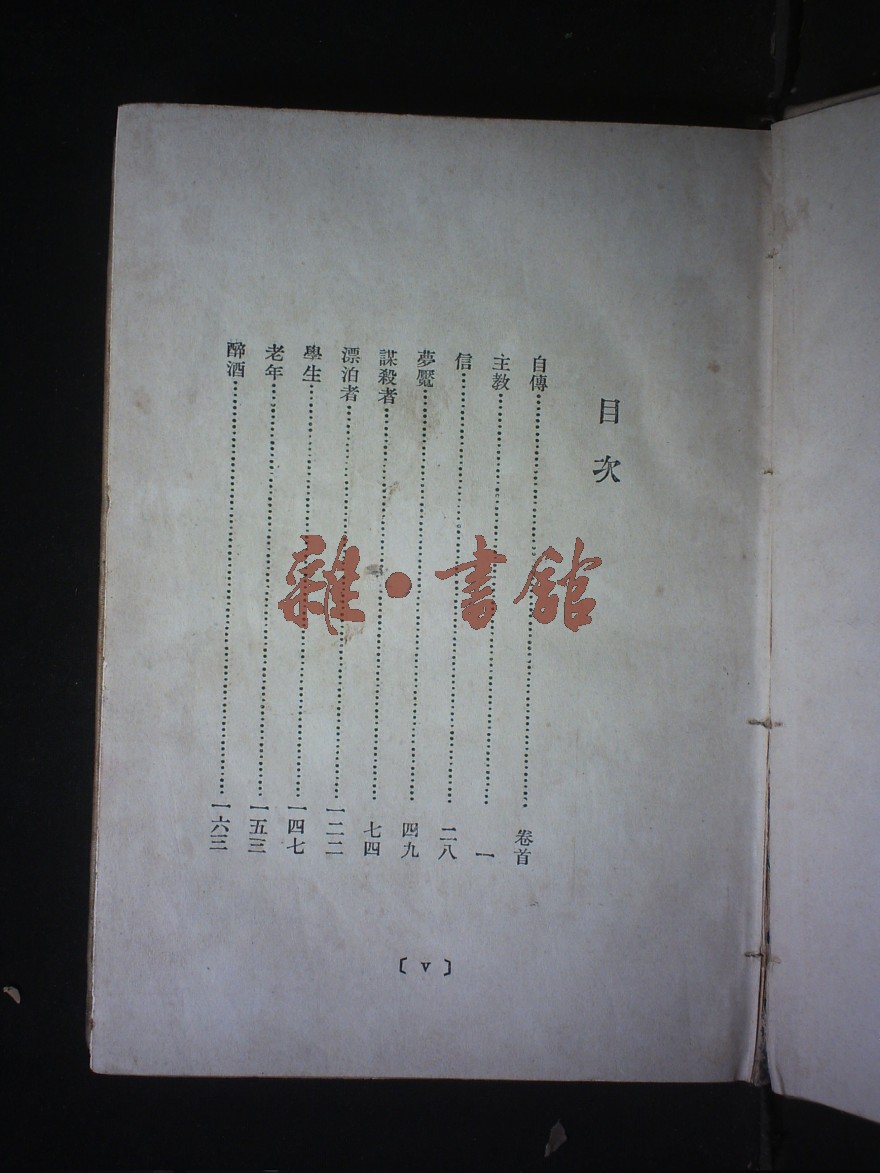 目次
自傳……卷首
主教……一
信……二八
夢魘……四九
謀殺者……七四
漂泊者……一二二
學生……一四七
老年……一五三
醉酒……一六三
〔V〕
雜·書館